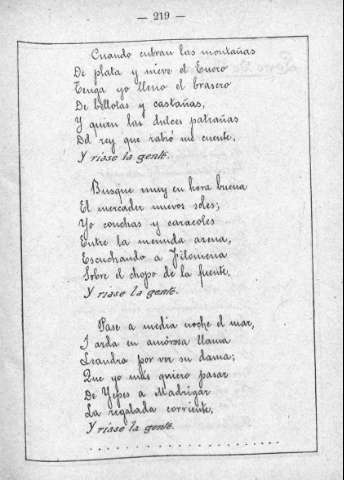 — 219 —
Cuando cubran las montañas
De plata y nieve el Enero
Tenga yo lleno el brasero
De bellotas y castañas,
Y quien las dulces patrañas
Del rey que rabió me cuente,
Y ríase la gente.
Busque muy en hora buena
El mercader nuevos soles;
Yo conchas y caracoles
Entre la menuda arena,
Escuchando a Filomena
Sobre el chopo de la fuente,
Y ríase la gente.
Pase a media noche el mar,
I arda en amorosa llama
Leandro por ver su dama;
Que yo más quiero pasar
De Yepes a Madrigar
La regalada corriente,
Y ríase la gente.
. . . . . . . . . . . . . . . . . . . . . .